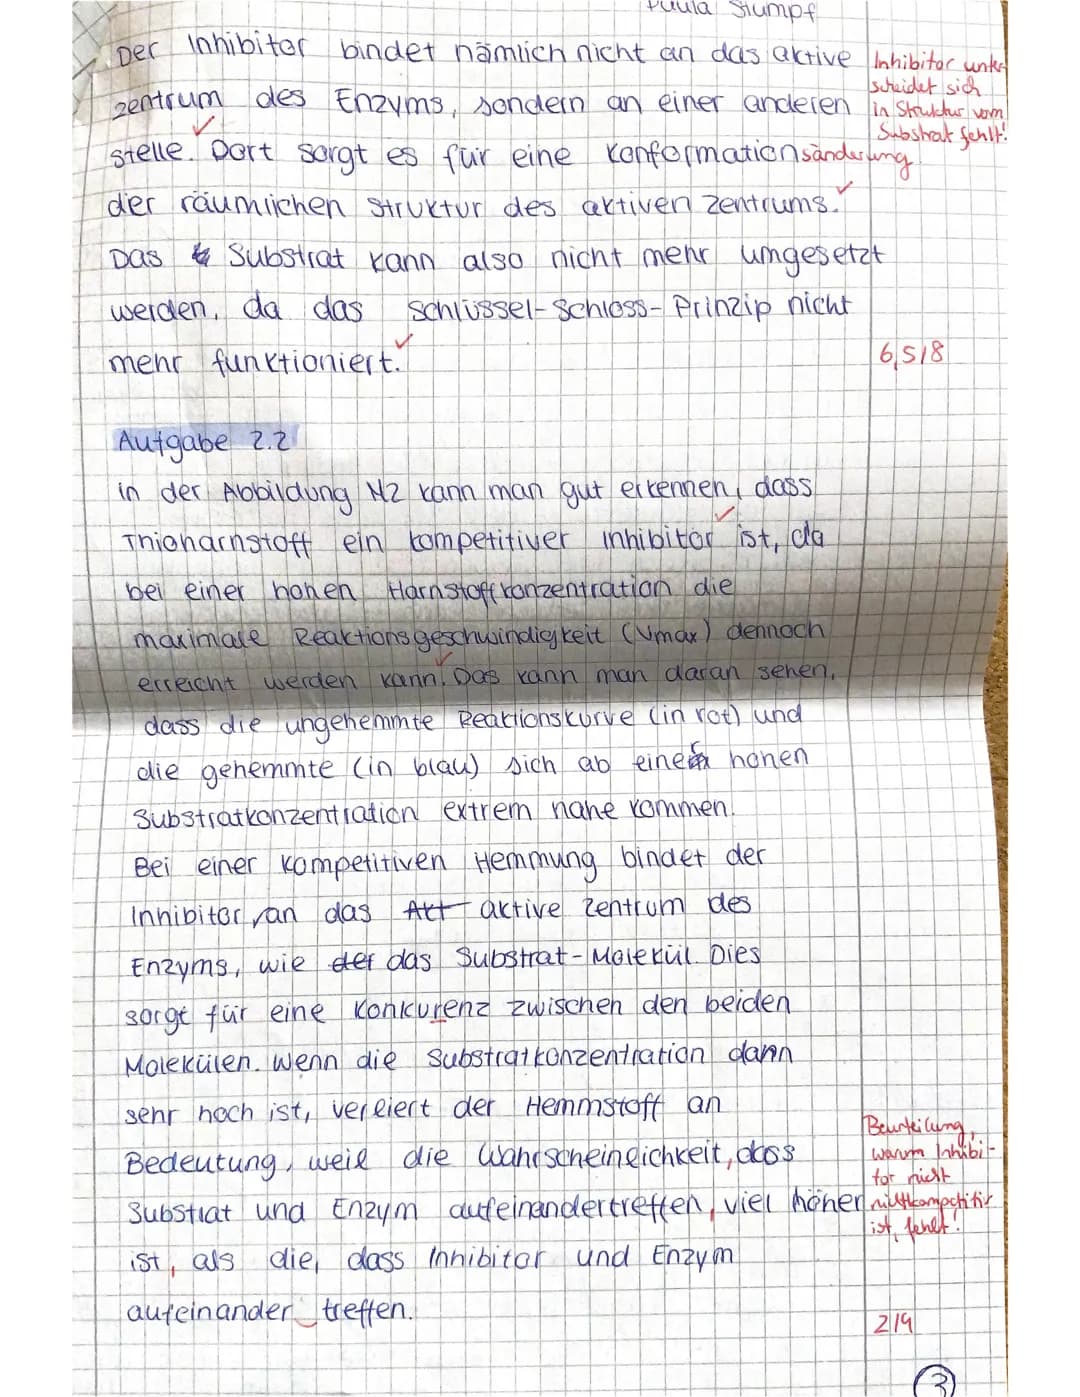 Stumpf
Der Inhibitor bindet nämlich nicht an das aktive
Inhibitor unter
scheidet sich
in Struktur vom
Substrat fehlt!
zentrum des Enzyms, sondern an einer anderen
stelle. Dort sorgt es für eine Konformationsänderung
der räumlichen Struktur des aktiven Zentrums.
Das Substrat kann also nicht mehr umgesetzt
werden, da das Schlüssel-Schloss-Prinzip nicht
mehr funktioniert.
6,5/8
Aufgabe 2.2
in der Abbildung M2 kann man gut erkennen, dass
Thioharnstoff ein kompetitiver Inhibitor ist, da
bei einer hohen Harnstoffkonzentration die
maximale Reaktionsgeschwindigkeit (Vmax) dennoch
erreicht werden kann. Das kann man daran sehen,
dass die ungehemmte Reaktionskurve (in rot) und
die gehemmte (in blau) sich ab einer hohen
Substratkonzentration extrem nahe kommen.
Bei einer kompetitiven Hemmung bindet der
Inhibitor an das Akt aktive Zentrum des
Enzyms, wie der das Substrat-Molekül. Dies
sorgt für eine Konkurenz zwischen den beiden
Molekülen. Wenn die Substratkonzentration dann
sehr hoch ist, verliert der Hemmstoff an
Bedeutung, weil die Wahrscheinlichkeit, dass
Substrat und Enzym aufeinandertreffen, viel höher
ist, als die, dass Inhibitor und Enzym
aufeinander treffen.
Beurteilung,
warum Inhibi-
tor nicht
nichtkompetitiv
ist, fehlt!
2/4
3